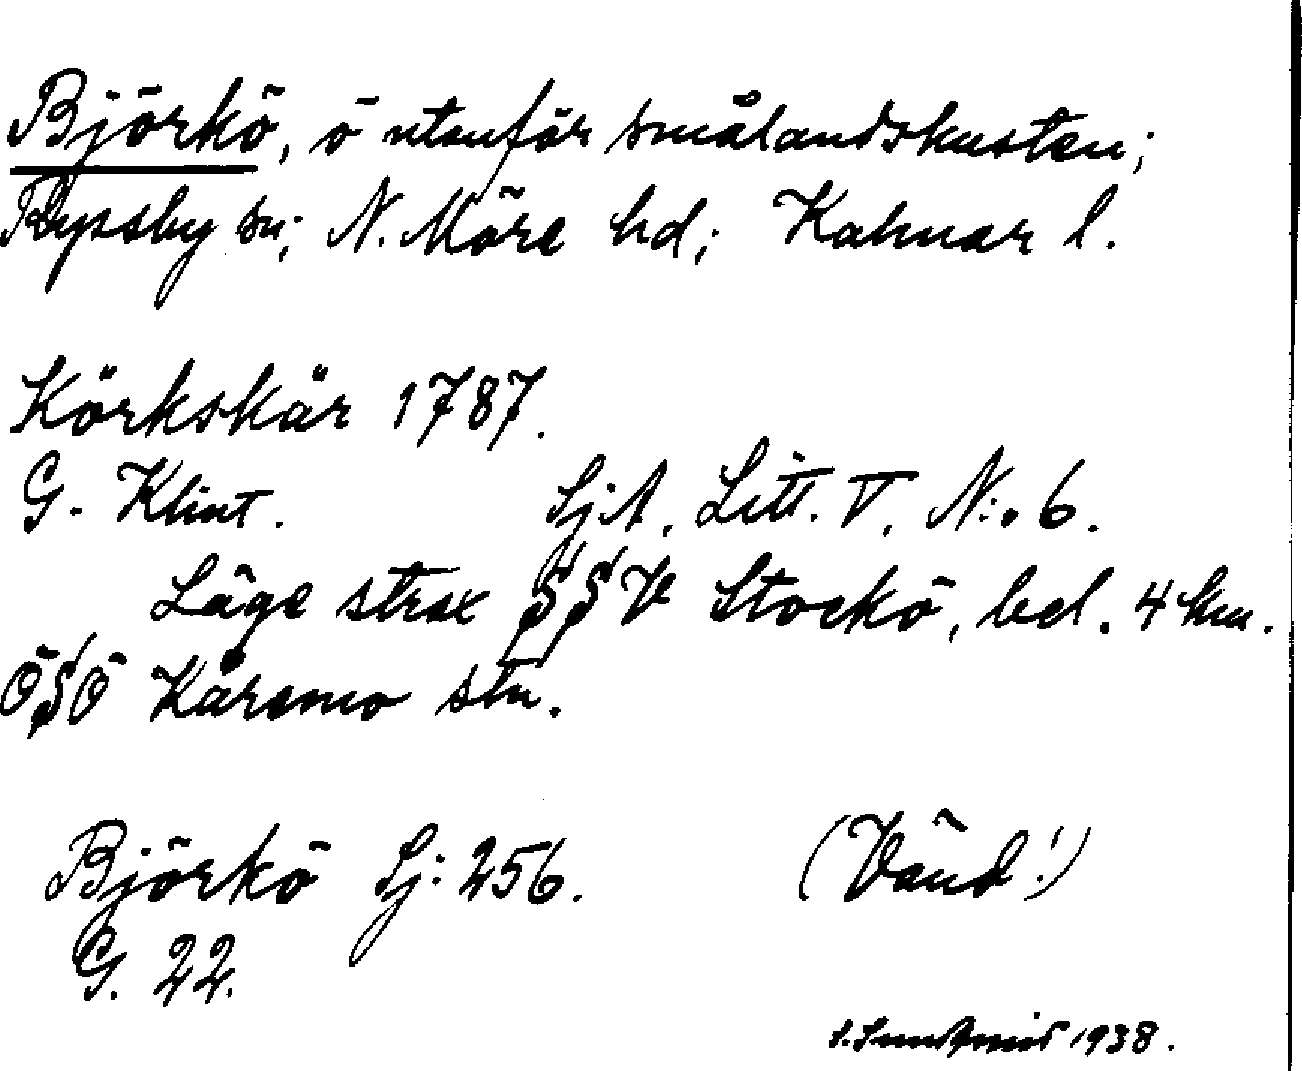 Björkö, ö utanför smålandskusten;
Ryssby sn; N. Möre hd; Kalmar l.
Körkskär 1787.
G. Klint. SjA, Litt. V, N:o 6.
Läge strax SSV Stockö, bel. 4 km.
ÖSÖ Kåremo stn.
Björkö Sj: 256. (Vänd!)
G. 22.
1938.